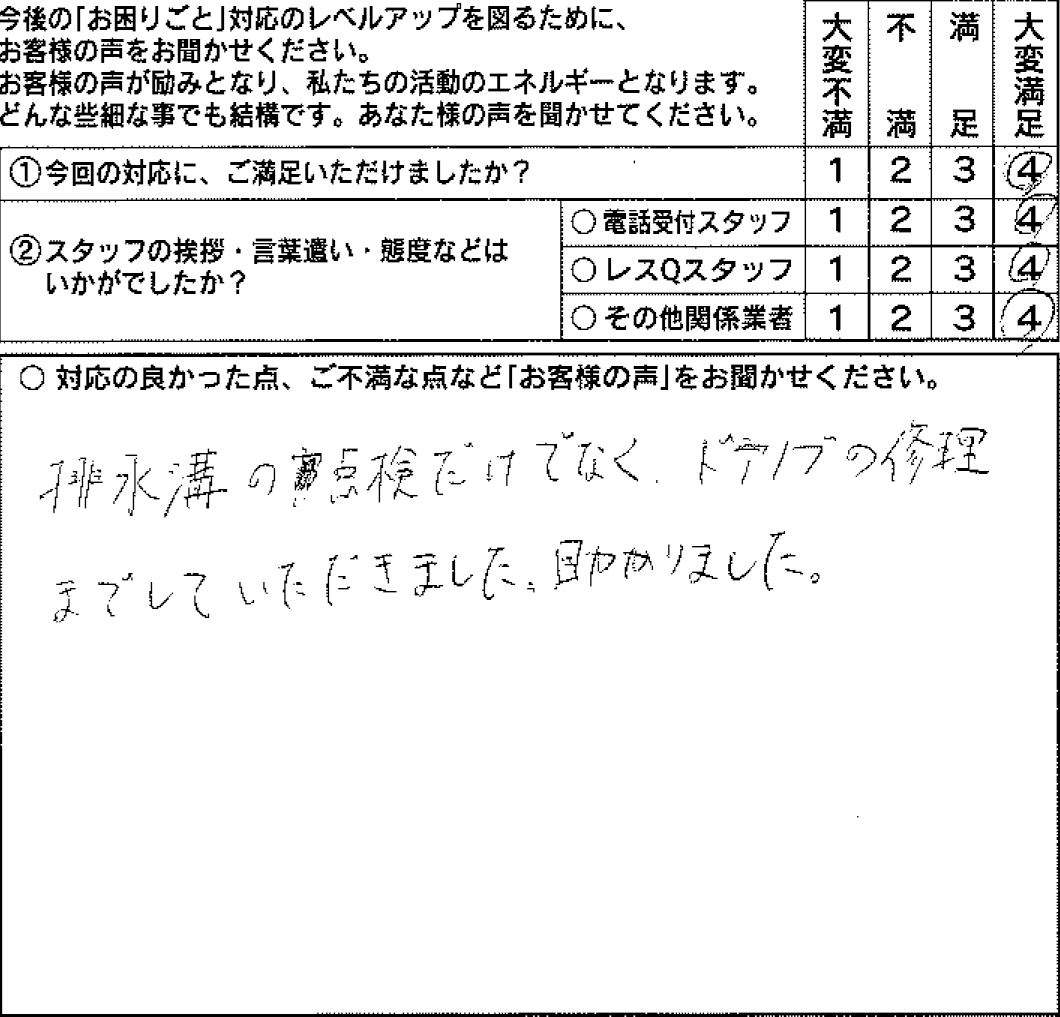 今後の「お困りごと」対応のレベルアップを図るために、
お客様の声をお聞かせください。
お客様の声が励みとなり、私たちの活動のエネルギーとなります。
どんな些細な事でも結構です。あなた様の声を聞かせてください。
大変不満 不満 満足 大変満足
①今回の対応に、ご満足いただけましたか? 1 2 3 4
②スタッフの挨拶・言葉遣い・態度などは
いかがでしたか?
○電話受付スタッフ 1 2 3 4
○レスQスタッフ 1 2 3 4
○その他関係業者 1 2 3 4
○ 対応の良かった点、ご不満な点など「お客様の声」をお聞かせください。
排水溝の点検だけでなく、ドアノブの修理
までしていただきました、助かりました。